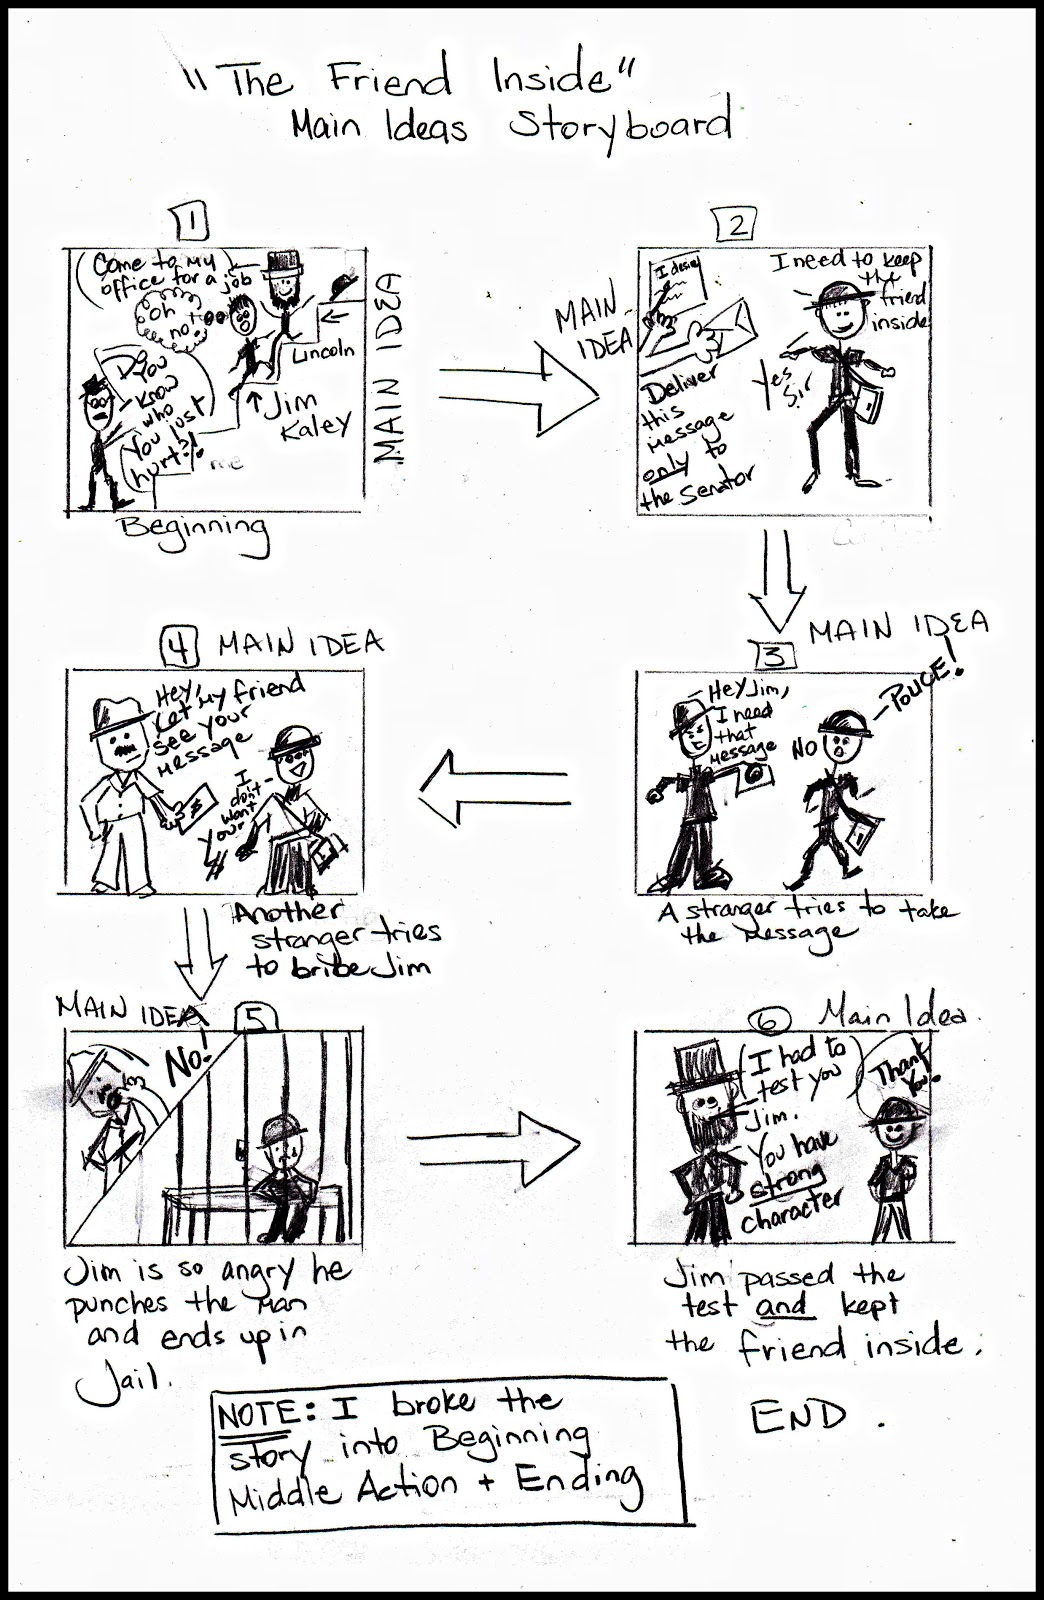 "The Friend Inside"
Main Ideas Storyboard
1
Come to my
office for a job
oh
no!
Do
You
Know
who
You just
hurt?!
me
Lincoln
Jim
Kaley
MAIN IDEA
Beginning
2
MAIN
IDEA
I desire
I need to keep
the
friend
inside
Yes
Sir
Deliver
this
message
only to
the Senator
MAIN IDEA
3
Hey Jim,
I need
that
message
NO
POLICE!
A stranger tries to take
the message
4 MAIN IDEA
Hey,
Let my friend
see your
message
$
I
don't
want
your
$
Another
stranger tries
to bribe Jim
MAIN IDEA 5
No!
Jim is so angry he
punches the man
and ends up in
Jail.
6 Main Idea.
I had to
test you
Jim.
You have
strong
character
Thank
You!
Jim passed the
test and kept
the friend inside.
END.
NOTE: I broke the
story into Beginning
Middle Action + Ending